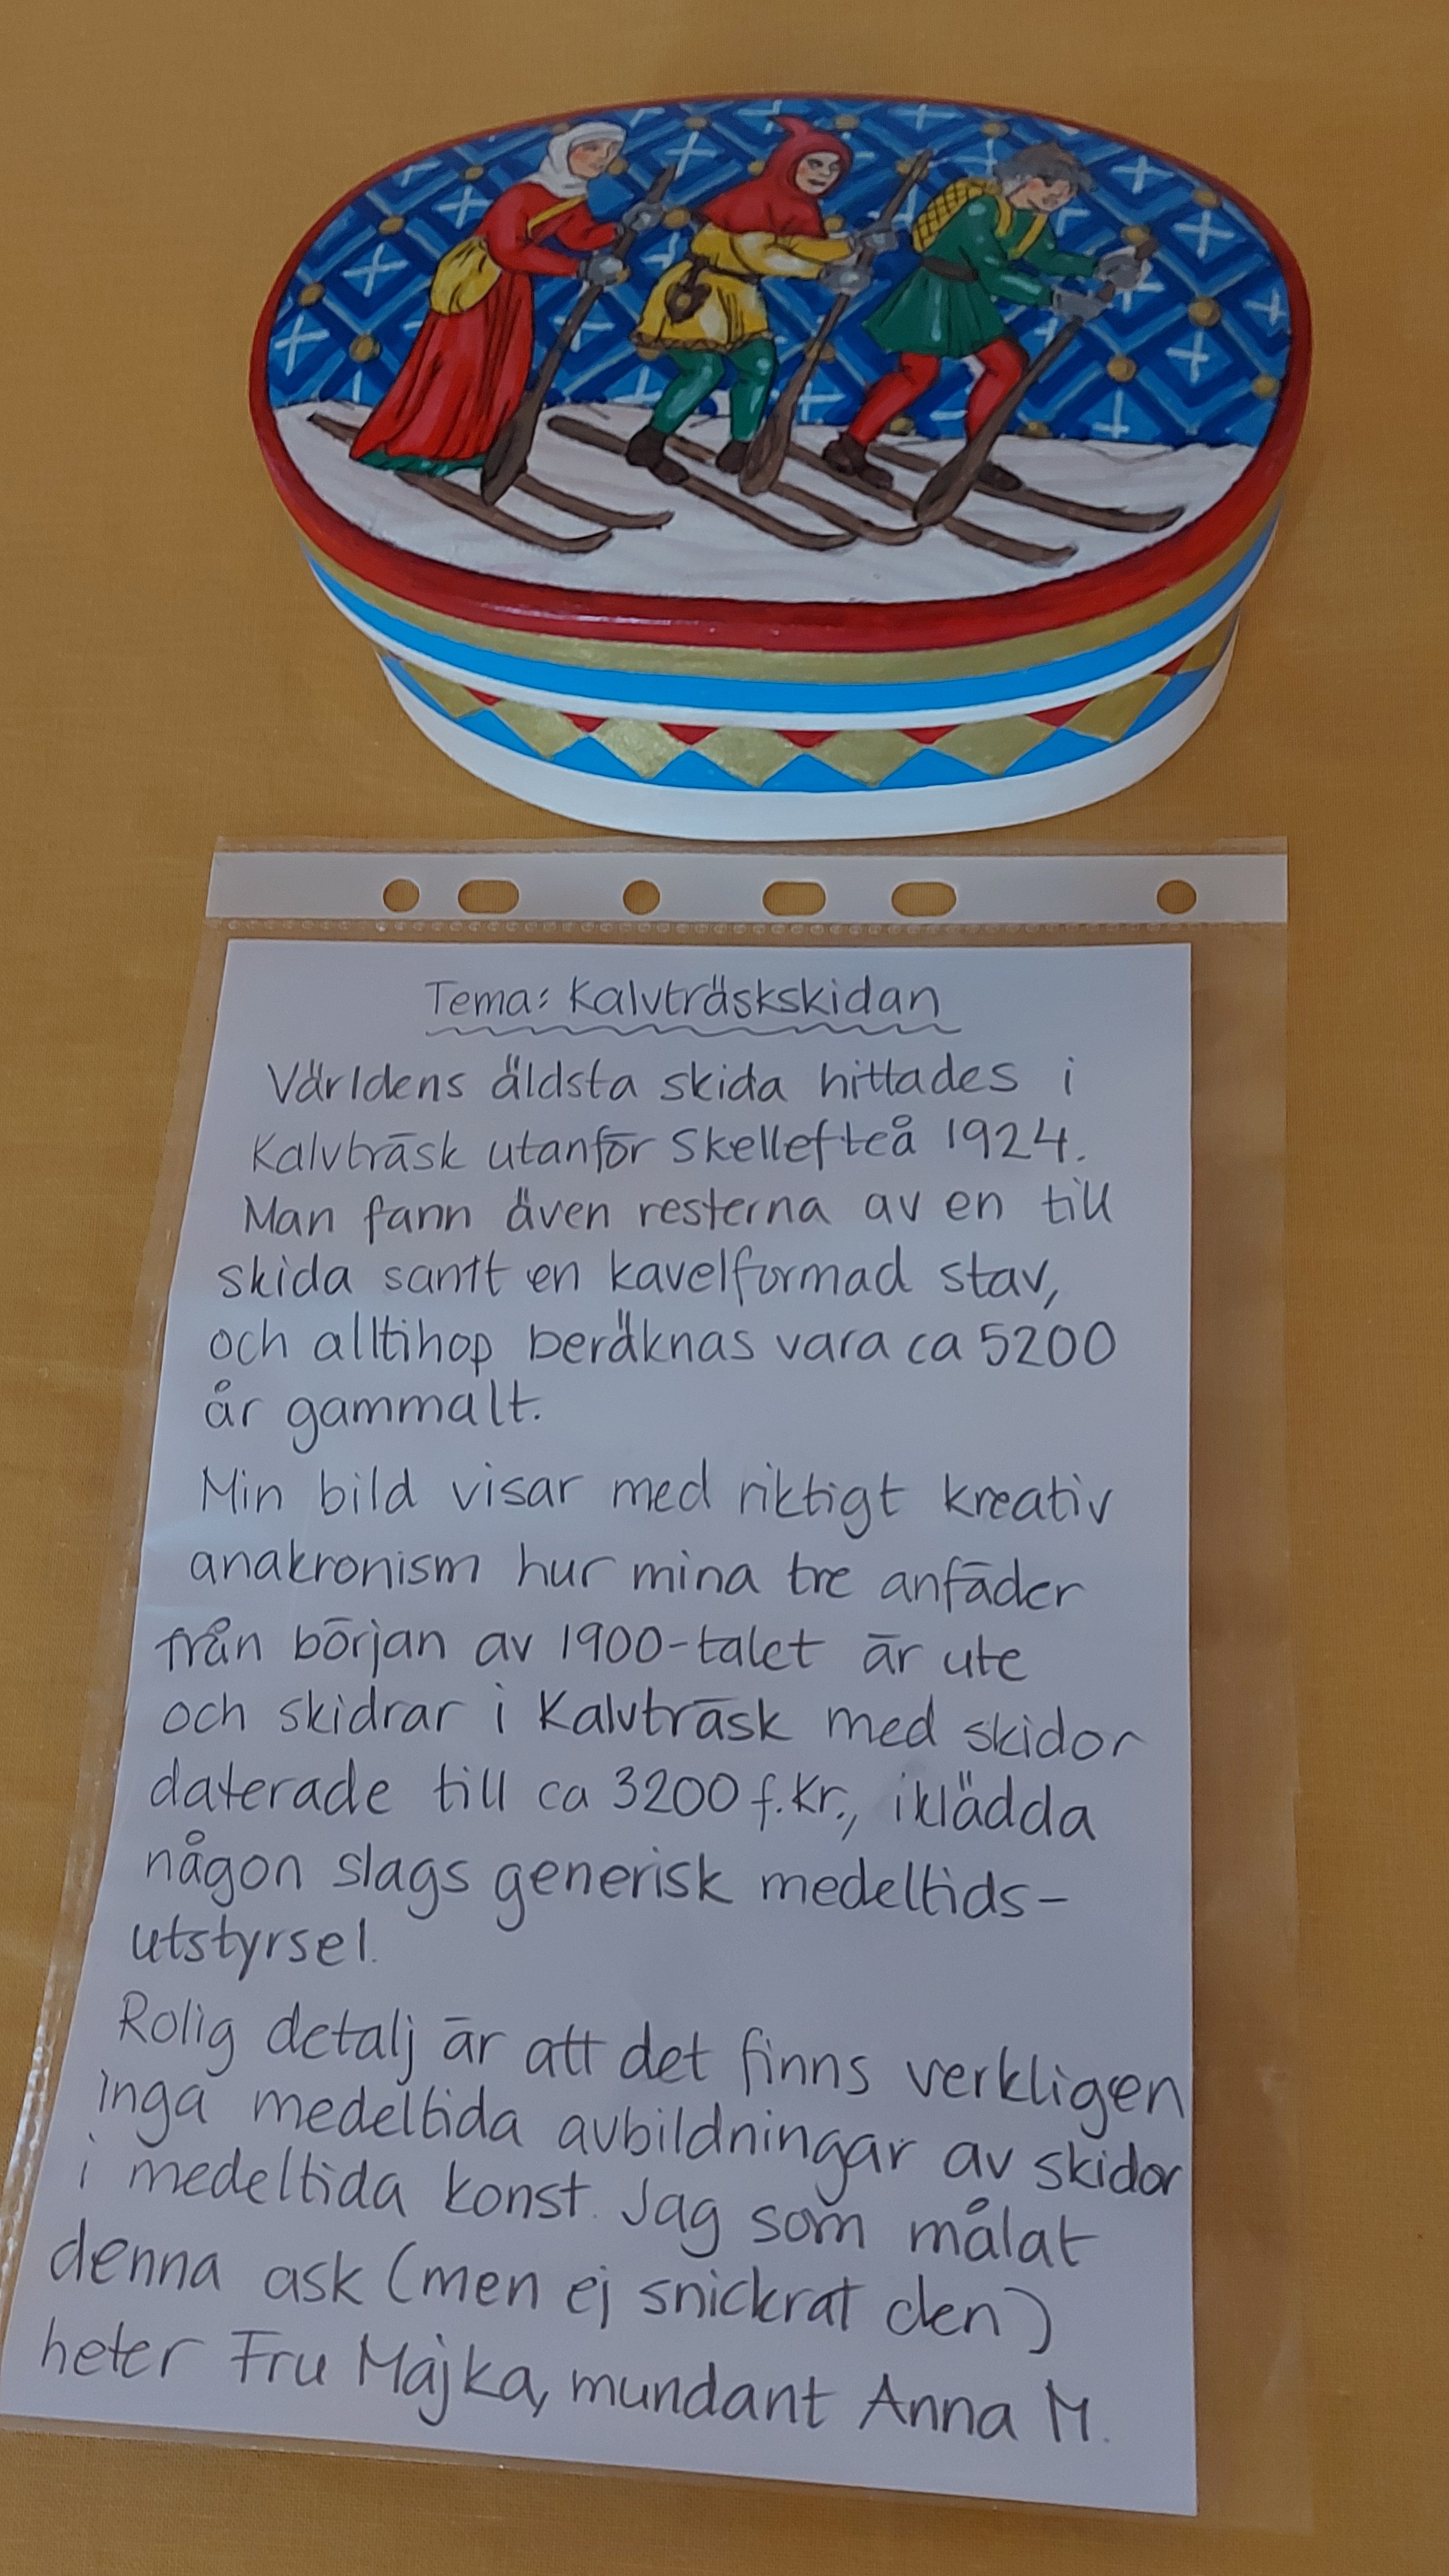 Tema: Kalvträskskidan
Världens äldsta skida hittades i
Kalvträsk utanför Skellefteå 1924.
Man fann även resterna av en till
skida samt en kavelformad stav,
och alltihop beräknas vara ca 5200
år gammalt.
Min bild visar med riktigt kreativ
anakronism hur mina tre anfäder
från början av 1900-talet är ute
och skidrar i Kalvträsk med skidor
daterade till ca 3200 f.Kr., iklädda
någon slags generisk medeltids-
utstyrsel.
Rolig detalj är att det finns verkligen
inga medeltida avbildningar av skidor
i medeltida konst. Jag som målat
denna ask (men ej snickrat den)
heter Fru Majka, mundant Anna M.